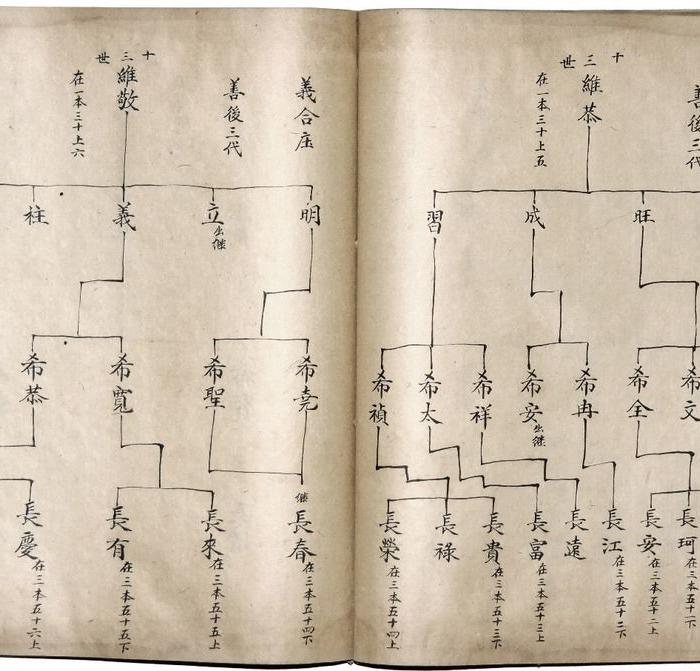 善後三代
十三世
維恭
在一本三十上五
旺
成
習
希文
希全
希冉
希安出继
希祥
希太
希禎
長珂在三本五十二下
長安在三本五十二上
長江在三本五十三下
長遠
長富在三本五十三上
長貴在三本五十三下
長祿
長榮在三本五十四上
義合庄
善後三代
十三世
維敬
在一本三十上六
明
立出继
義
柱
希堯
希聖
希寬
希恭
继長春在三本五十四下
長來在三本五十五上
長有在三本五十五下
長慶在三本五十六上